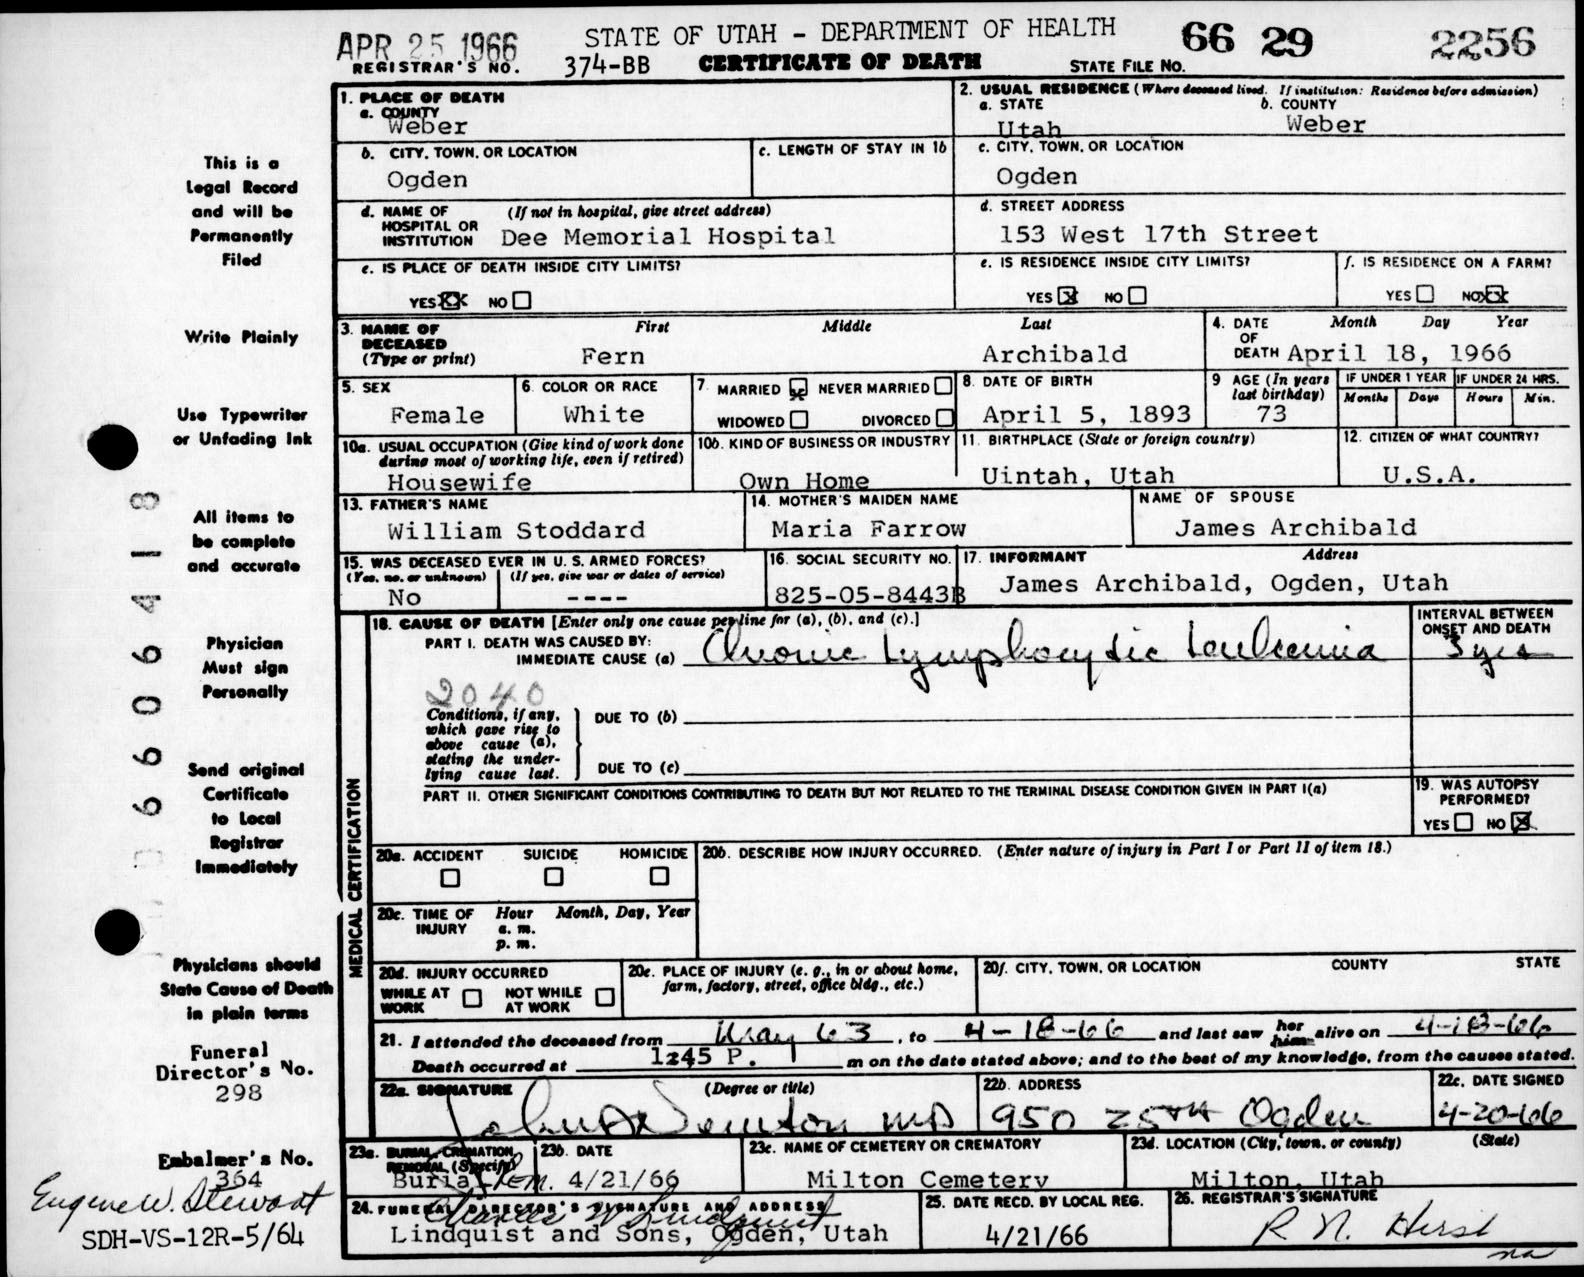 APR 25 1966
STATE OF UTAH - DEPARTMENT OF HEALTH
66 29 2256
REGISTRAR'S NO. 374-BB CERTIFICATE OF DEATH STATE FILE NO.
1. PLACE OF DEATH
a. COUNTY
Weber
2. USUAL RESIDENCE (Where deceased lived. If institution: Residence before admission)
a. STATE b. COUNTY
Utah Weber
b. CITY, TOWN, OR LOCATION
Ogden
c. LENGTH OF STAY IN 1b
c. CITY, TOWN, OR LOCATION
Ogden
d. NAME OF (If not in hospital, give street address)
HOSPITAL OR
INSTITUTION Dee Memorial Hospital
d. STREET ADDRESS
153 West 17th Street
e. IS PLACE OF DEATH INSIDE CITY LIMITS?
YES XX NO
e. IS RESIDENCE INSIDE CITY LIMITS?
YES X NO
f. IS RESIDENCE ON A FARM?
YES NO XX
3. NAME OF First Middle Last
DECEASED
(Type or print) Fern Archibald
4. DATE Month Day Year
OF
DEATH April 18, 1966
5. SEX
Female
6. COLOR OR RACE
White
7. MARRIED X NEVER MARRIED
WIDOWED DIVORCED
8. DATE OF BIRTH
April 5, 1893
9 AGE (In years
last birthday)
73
IF UNDER 1 YEAR IF UNDER 24 HRS.
Months Days Hours Min.
10a. USUAL OCCUPATION (Give kind of work done
during most of working life, even if retired)
Housewife
10b. KIND OF BUSINESS OR INDUSTRY
Own Home
11. BIRTHPLACE (State or foreign country)
Uintah, Utah
12. CITIZEN OF WHAT COUNTRY?
U.S.A.
13. FATHER'S NAME
William Stoddard
14. MOTHER'S MAIDEN NAME
Maria Farrow
NAME OF SPOUSE
James Archibald
15. WAS DECEASED EVER IN U. S. ARMED FORCES?
(Yes, no, or unknown) (If yes, give war or dates of service)
No ----
16. SOCIAL SECURITY NO.
825-05-8443B
17. INFORMANT Address
James Archibald, Ogden, Utah
MEDICAL CERTIFICATION
18. CAUSE OF DEATH [Enter only one cause per line for (a), (b), and (c).]
INTERVAL BETWEEN
ONSET AND DEATH
PART I. DEATH WAS CAUSED BY:
IMMEDIATE CAUSE (a) Chronic Lymphocytic Leukemia 3 yrs
2040
Conditions, if any,
which gave rise to
above cause (a),
stating the under-
lying cause last.
DUE TO (b)
DUE TO (c)
PART II. OTHER SIGNIFICANT CONDITIONS CONTRIBUTING TO DEATH BUT NOT RELATED TO THE TERMINAL DISEASE CONDITION GIVEN IN PART I(a)
19. WAS AUTOPSY
PERFORMED?
YES NO X
20a. ACCIDENT SUICIDE HOMICIDE
20b. DESCRIBE HOW INJURY OCCURRED. (Enter nature of injury in Part I or Part II of item 18.)
20c. TIME OF Hour Month, Day, Year
INJURY a. m.
p. m.
20d. INJURY OCCURRED
WHILE AT NOT WHILE
WORK AT WORK
20e. PLACE OF INJURY (e. g., in or about home,
farm, factory, street, office bldg., etc.)
20f. CITY, TOWN, OR LOCATION COUNTY STATE
21. I attended the deceased from May 63, to 4-18-66 and last saw her him alive on 4-18-66
Death occurred at 1245 P. m on the date stated above; and to the best of my knowledge, from the causes stated.
22a. SIGNATURE (Degree or title)
John A Newton MD
22b. ADDRESS
950 25TH Ogden
22c. DATE SIGNED
4-20-66
23a. BURIAL, CREMATION
REMOVAL (Specify)
Burial-Rem.
23b. DATE
4/21/66
23c. NAME OF CEMETERY OR CREMATORY
Milton Cemetery
23d. LOCATION (City, town, or county) (State)
Milton, Utah
24. FUNERAL DIRECTOR'S SIGNATURE AND ADDRESS
Charles W Lindquist
Lindquist and Sons, Ogden, Utah
25. DATE RECD. BY LOCAL REG.
4/21/66
26. REGISTRAR'S SIGNATURE
R N. Hirst
na
This is a
Legal Record
and will be
Permanently
Filed
Write Plainly
Use Typewriter
or Unfading Ink
All items to
be complete
and accurate
Physician
Must sign
Personally
Send original
Certificate
to Local
Registrar
Immediately
Physicians should
State Cause of Death
in plain terms
Funeral
Director's No.
298
Embalmer's No.
364
Eugene W. Stewart
SDH-VS-12R-5/64
6606418